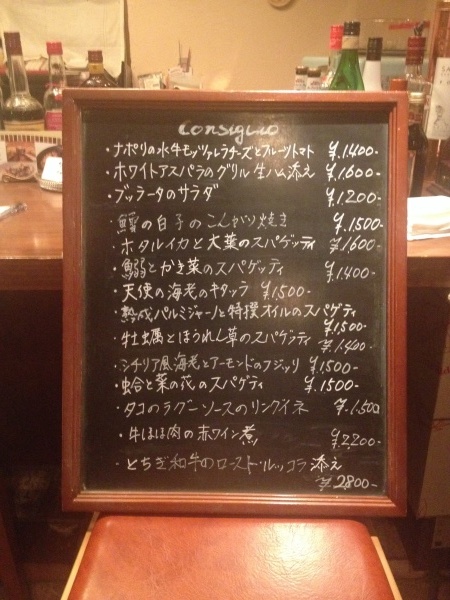 Consiglio
・ナポリの水牛モッツァレラチーズとフルーツトマト ¥1.400-
・ホワイトアスパラのグリル 生ハム添え ¥1600-
・ブッラータのサラダ ¥1200-
・鱈の白子のこんがり焼き ¥.1500-
・ホタルイカと大葉のスパゲッティ ¥1600-
・鰯とかき菜のスパゲッティ ¥1400-
・天使の海老のキタッラ ¥1,500-
・熟成パルミジャーノと特撰オイルのスパゲティ
¥1500-
・牡蠣とほうれん草のスパゲッティ ¥1.400-
・シチリア風海老とアーモンドのフジッリ ¥1,500-
・蛤と菜の花のスパゲティ ¥1500-
・タコのラグーソースのリングイネ ¥.1.500
・牛ほほ肉の赤ワイン煮 ¥2200-
・とちぎ和牛のロースト・ルッコラ添え
¥2800-